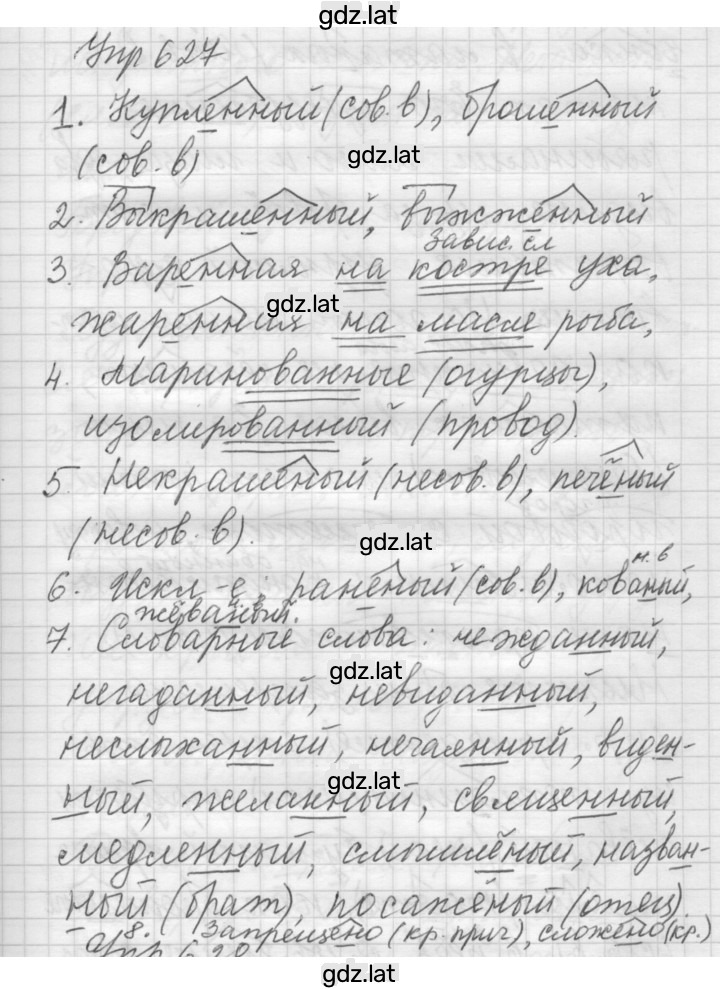 gdz.lat
Упр 627
1. Купленный (сов. в), брошенный
gdz.lat
(сов. в)
2. Выкрашенный, выжженный
завис. сл
3. Варенная на костре уха,
gdz.lat
жаренная на масле рыба,
4. Маринованные (огурцы),
изолированный (провод).
5. Некрашеный (несов. в), печёный
(несов. в).
gdz.lat
н. в
6. Искл-е, раненый (сов. в), кованый,
жёваный.
7. Словарные слова: нежданный,
gdz.lat
негаданный, невиданный,
неслыханный, нечаянный, виден-
gdz.lat
ный, желанный, священный,
медленный, смышлёный, назван-
ный (брат), посажёный (отец).
gdz.lat
8. Запрещено (кр. прич), сложено (кр.)
Упр 628
gdz.lat